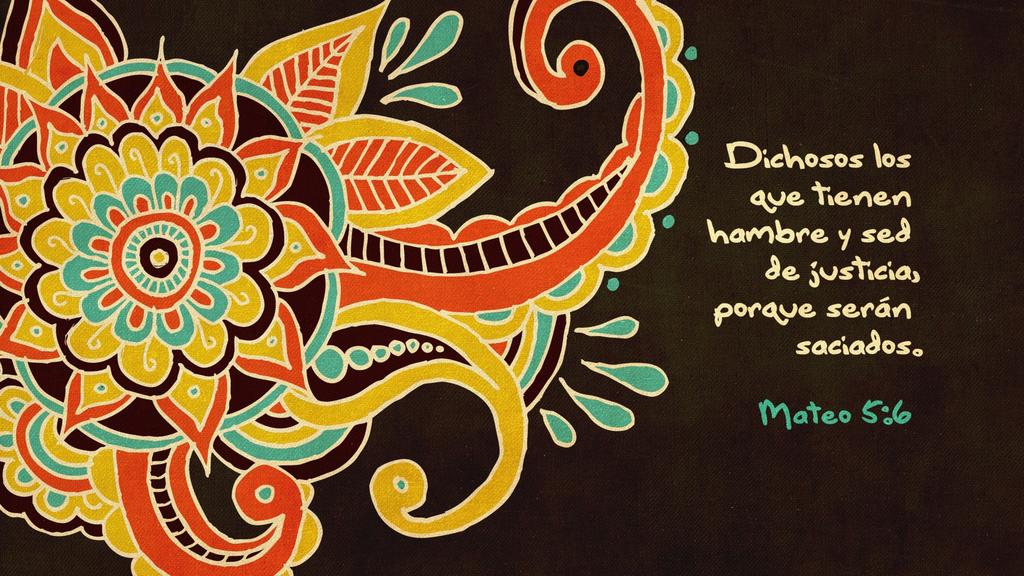 Dichosos los
que tienen
hambre y sed
de justicia,
porque serán
saciados.
Mateo 5:6